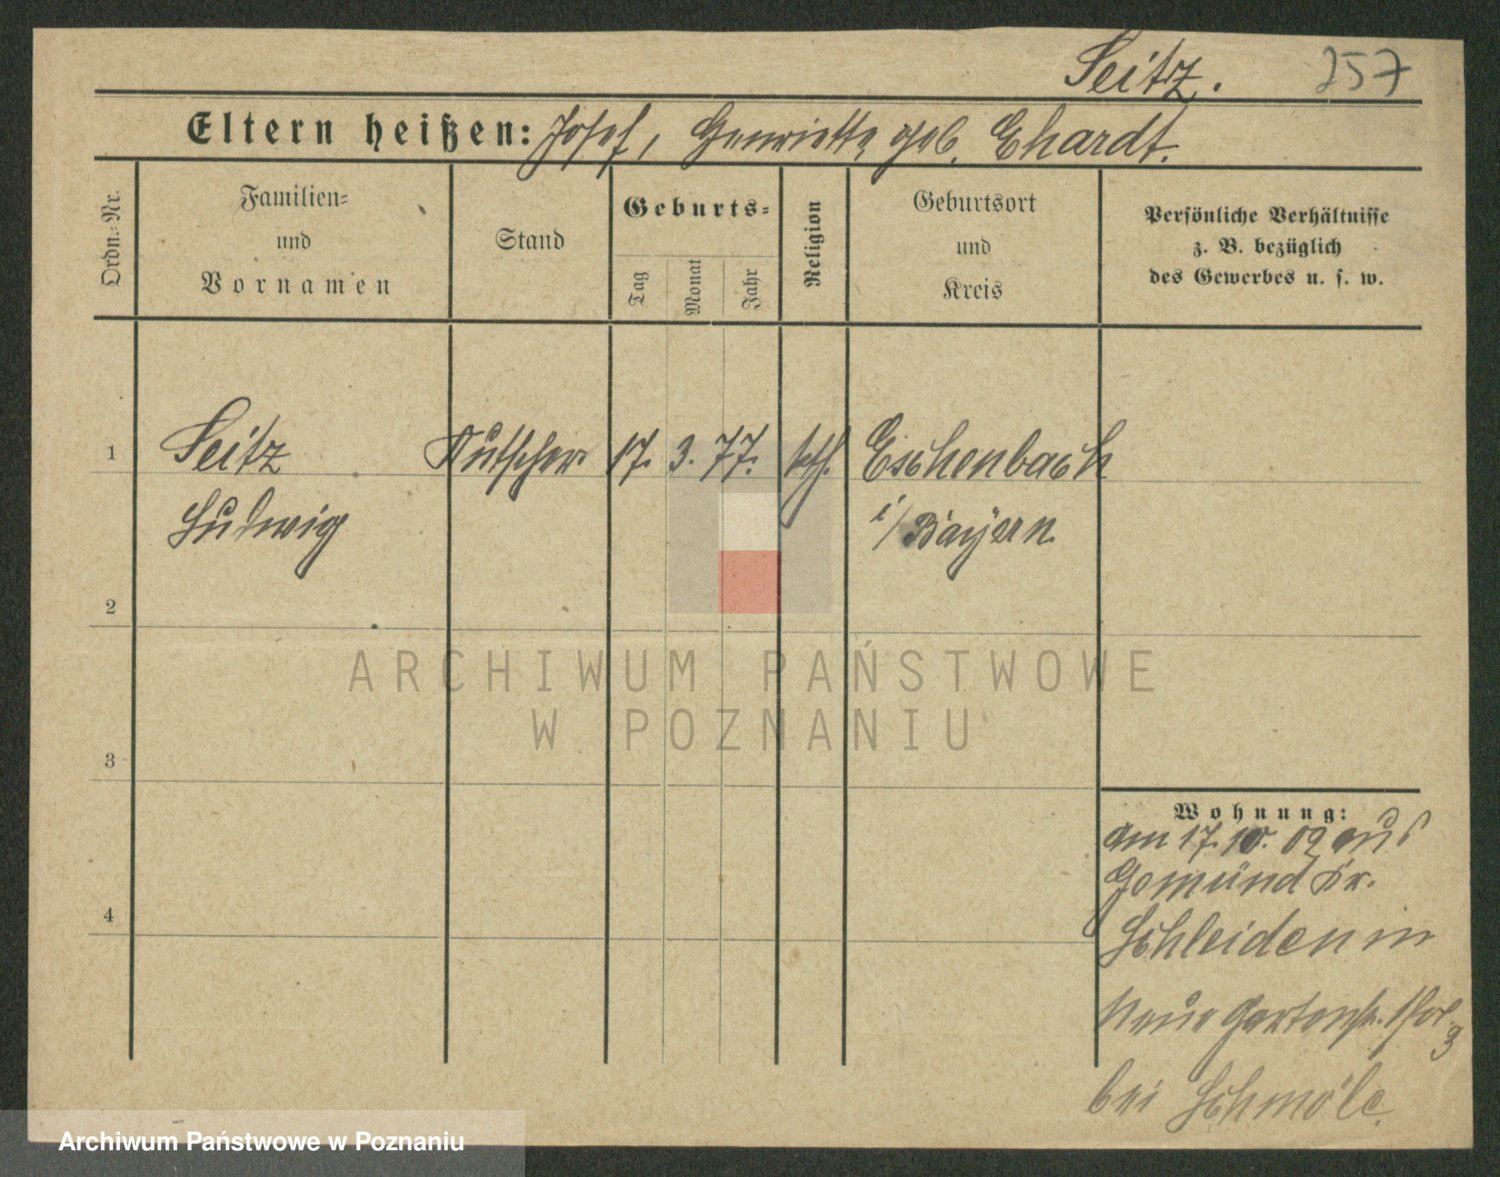 Seitz. 257
Eltern heißen: Josef, Henriette geb. Ehardt.
Ordn.-Nr.
Familien-
und
Vornamen
Stand
Geburts-
Tag
Monat
Jahr
Religion
Geburtsort
und
Kreis
Persönliche Verhältnisse
z. B. bezüglich
des Gewerbes u. s. w.
1 Seitz Kutscher 17. 3. 77. kth. Eschenbach
Ludwig i/Bayern
2
ARCHIWUM PAŃSTWOWE
W POZNANIU
3
Wohnung:
am 17. 10. 09 aus
Gemünd Kr.
4
Schleiden in
Neue Gartenstr.
bei Schmöle
Archiwum Państwowe w Poznaniu